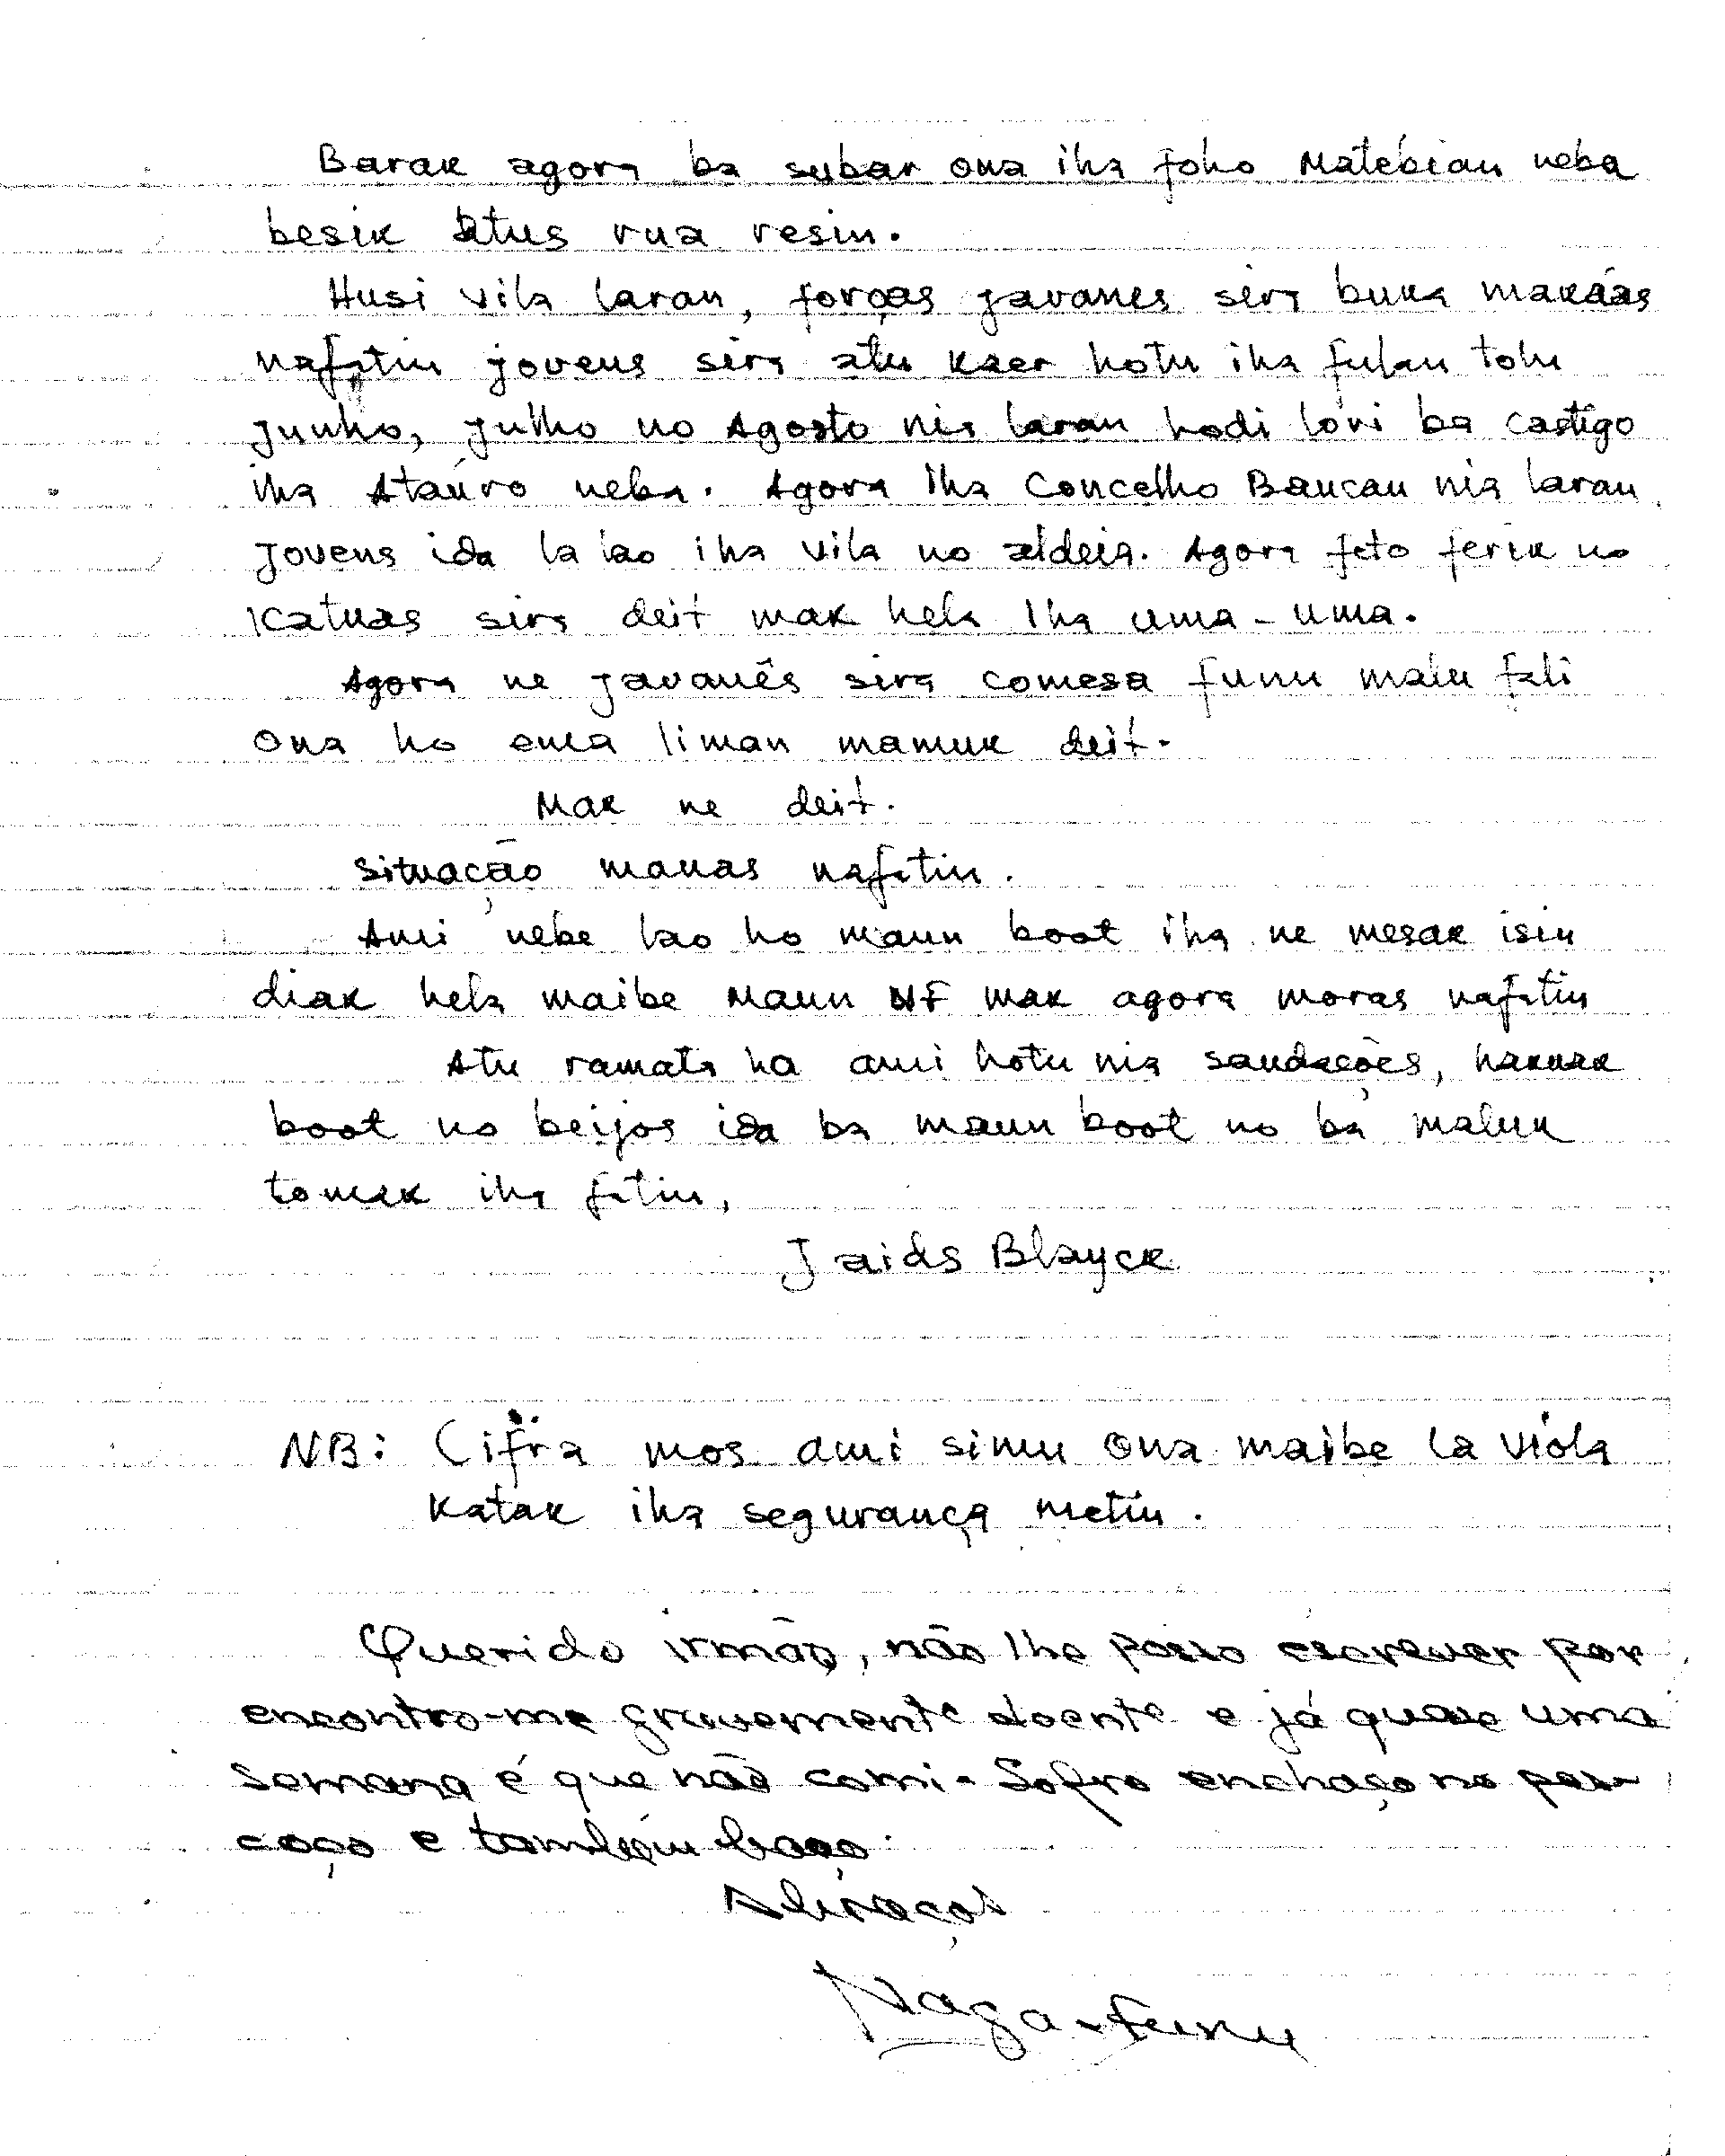 Barak agora ba subar ona iha foho Matebian neba
besik atus rua resin.
Husi vila laran, forças javanes sira buka makáas
nafatin jovens sira atu kaer hotu iha fulan tolu
Junho, Julho no Agosto nia laran hodi lori ba castigo
iha Ataúro neba. Agora iha Concelho Baucau nia laran
Jovens ida la lao iha vila no aldeia. Agora feto ferik no
Katuas sira deit mak hela iha uma-uma.
Agora ne javanês sira comesa funu malu fali
ona ho ema liman mamuk deit.
Mak ne deit.
Situação manas nafatin.
Ami nebe lao ho maun boot iha ne mesak isin
diak hela maibe Maun NF mak agora moras nafatin
Atu ramata ha ami hotu nia saudações, hakuak
boot no beijos ida ba maun boot no ba maluk
tomak iha fatin,
Jaids Blayck
NB: Cifra mos ami simu ona maibe la viola
Katak iha segurança metin.
Querido irmão, não lhe posso escrever por
encontro-me gravemente doente e já quase uma
semana é que não comi. Sofro enchaço no pes-
coço e também baço.
Abraços
Naga-funu